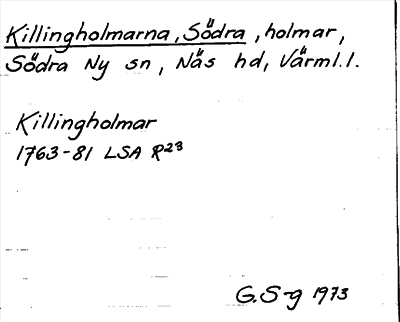 Killingholmarna, Södra, holmar,
Södra Ny sn, Näs hd, Värml.l.
Killingholmar
1763-81 LSA R28
G.S-g 1973